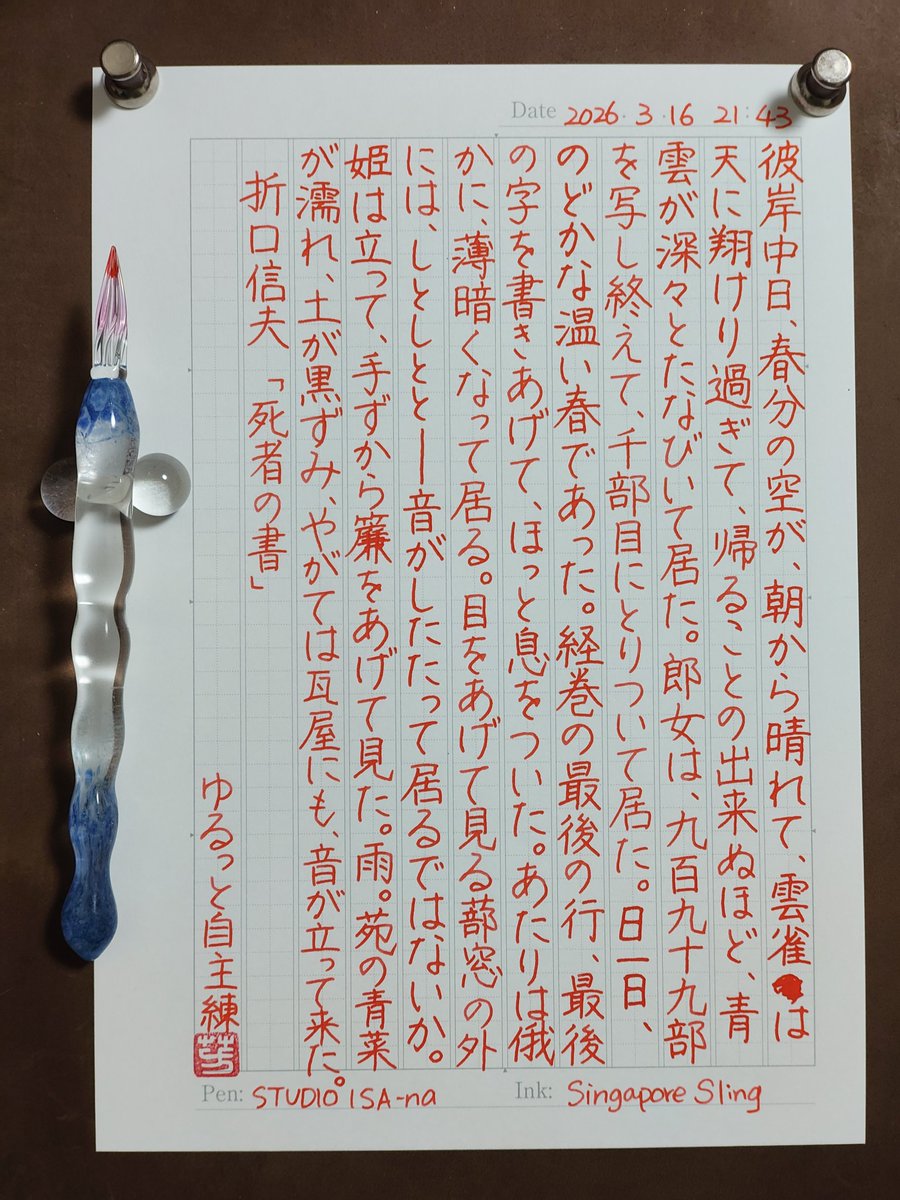 Date 2026.3.16 21:43
彼岸中日、春分の空が、朝から晴れて、雲雀は
天に翔けり過ぎて、帰ることの出来ぬほど、青
雲が深々とたなびいて居た。郎女は、九百九十九部
を写し終えて、千部目にとりついて居た。日一日、
のどかな温い春であった。経巻の最後の行、最後
の字を書きあげて、ほっと息をついた。あたりは俄
かに、薄暗くなって居る。目をあげて見る蔀窓の外
には、しとしとと――音がしたたって居るではないか。
姫は立って、手ずから簾をあげて見た。雨。苑の青菜
が濡れ、土が黒ずみ、やがては瓦屋にも、音が立って来た。
折口信夫「死者の書」
ゆるっと自主練
Pen: STUDIO ISA-na Ink: Singapore Sling